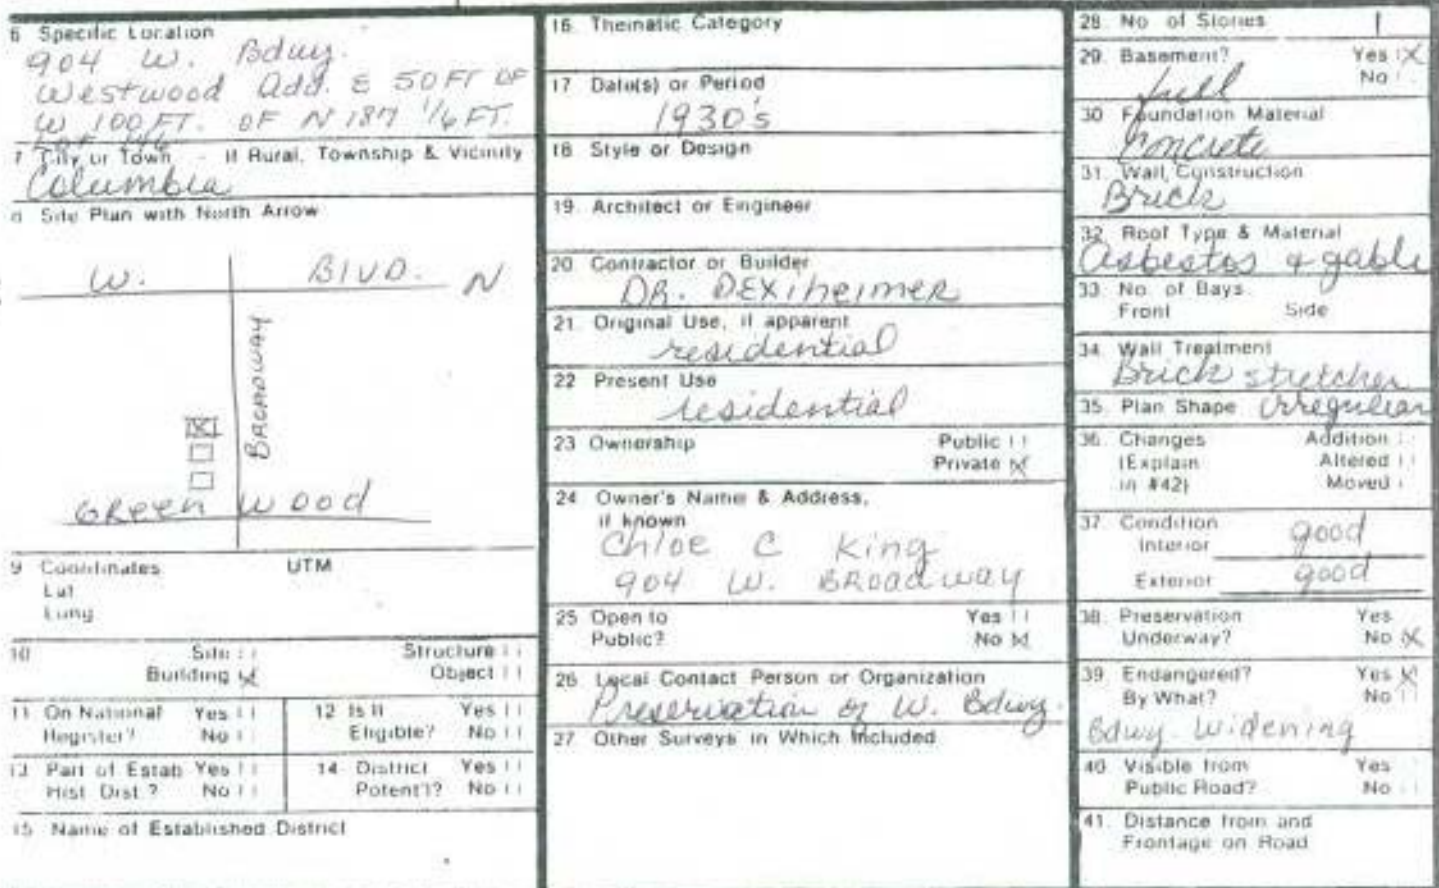 6 Specific Location
904 W. Bdwy.
Westwood Add. E 50 FT OF
W 100 FT. OF N 187 1/6 FT.
7 City or Town - If Rural, Township & Vicinity
Columbia
8 Site Plan with North Arrow
W. BLVD. N
BROADWAY
GREEN WOOD
9 Coordinates UTM
Lat
Long
10 Site Structure
Building Object
11 On National Yes 12 Is It Yes
Register? No Eligible? No
13 Part of Estab Yes 14 District Yes
Hist Dist? No Potent'l? No
15 Name of Established District
16. Thematic Category
17 Date(s) or Period
1930's
18 Style or Design
19. Architect or Engineer
20. Contractor or Builder
DR. DEXiheimer
21. Original Use, if apparent
residential
22 Present Use
residential
23 Ownership Public
Private
24 Owner's Name & Address,
if known
Chloe C King
904 W. BROADWAY
25 Open to Yes
Public? No
26 Local Contact Person or Organization
Preservation of W. Bdwy.
27 Other Surveys in Which Included
28 No of Stories 1
29. Basement? Yes
No
full
30 Foundation Material
Concrete
31. Wall Construction
Brick
32. Roof Type & Material
Asbestos + gable
33 No. of Bays
Front Side
34 Wall Treatment
Brick stretcher
35. Plan Shape irregular
36. Changes Addition
(Explain Altered
in #42) Moved
37. Condition
Interior good
Exterior good
38. Preservation Yes
Underway? No
39. Endangered? Yes
By What? No
Bdwy. Widening
40 Visible from Yes
Public Road? No
41. Distance from and
Frontage on Road